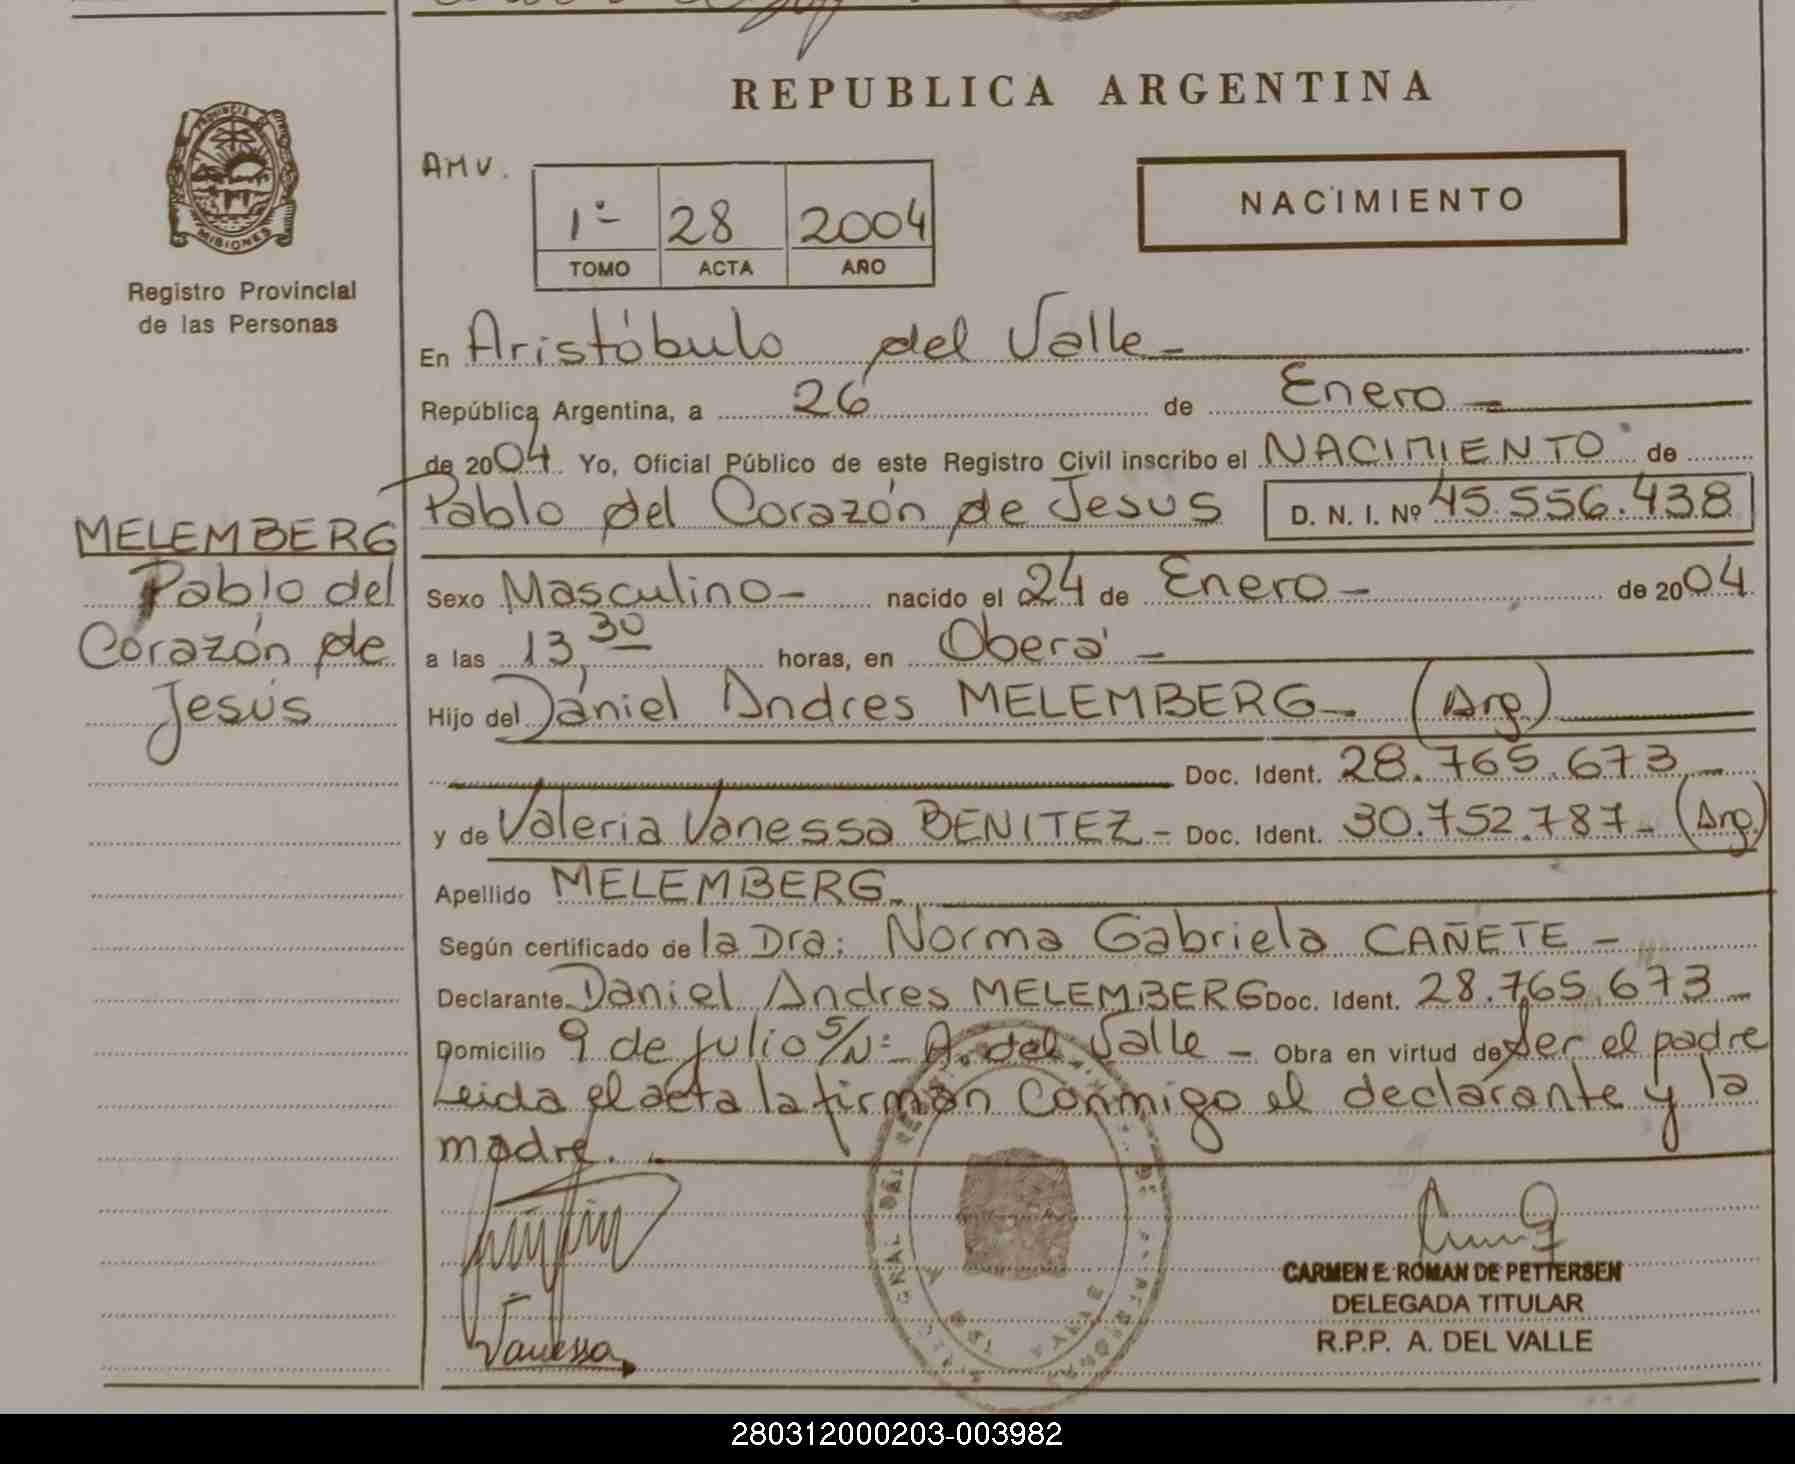 REPUBLICA ARGENTINA
PROVINCIA DE
MISIONES
Registro Provincial
de las Personas
AMV.
1º 28 2004
TOMO ACTA AÑO
NACIMIENTO
En Aristóbulo del Valle
República Argentina, a 26 de Enero
de 2004 Yo, Oficial Público de este Registro Civil inscribo el NACIMIENTO de
Pablo del Corazón de Jesus D. N. I. Nº 45.556.438
MELEMBERG
Pablo del
Corazón de
Jesús
Sexo Masculino - nacido el 24 de Enero - de 2004
a las 13,30 horas, en Oberá -
Hijo del Daniel Andres MELEMBERG - (Arg.)
Doc. Ident. 28.765.673 -
y de Valeria Vanessa BENITEZ - Doc. Ident. 30.752.787 - (Arg.)
Apellido MELEMBERG
Según certificado de la Dra: Norma Gabriela CAÑETE -
Declarante Daniel Andres MELEMBERG Doc. Ident. 28.765.673 -
Domicilio 9 de julio S/Nº A. del Valle - Obra en virtud de ser el padre
Leida el acta la firman conmigo el declarante y la
madre.
Vanessa
CARMEN E. ROMAN DE PETTERSEN
DELEGADA TITULAR
R.P.P. A. DEL VALLE
280312000203-003982